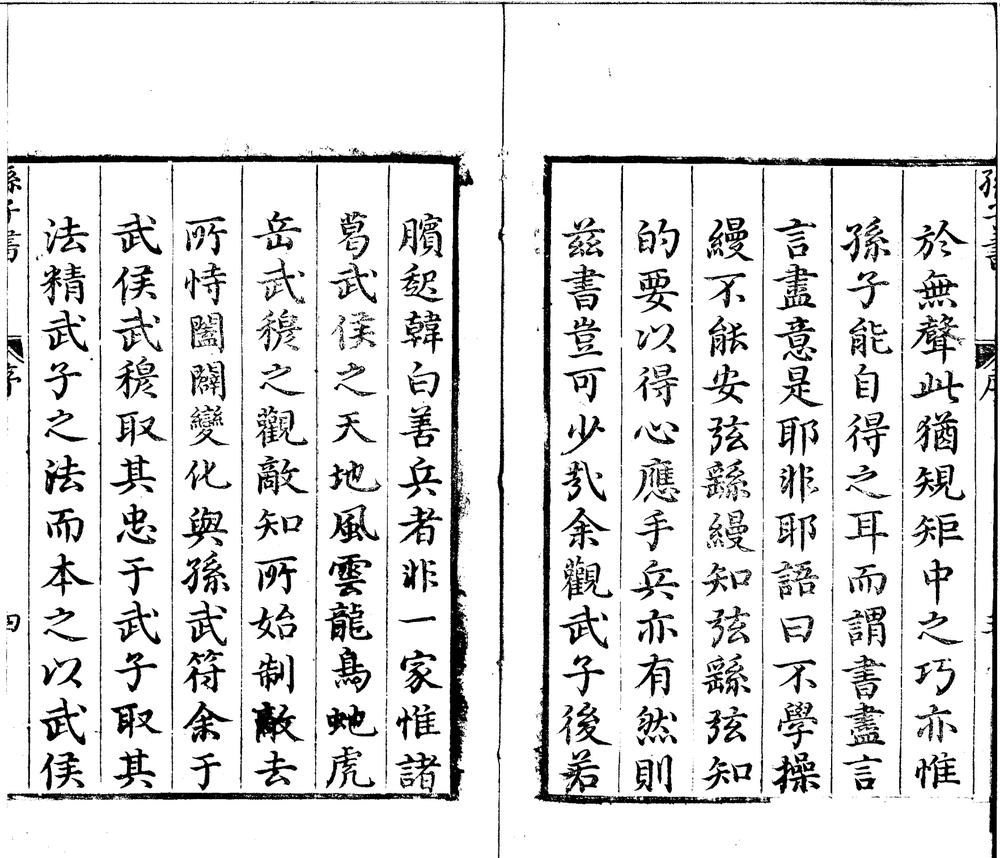 於無聲此猶規矩中之巧亦惟
孫子能自得之耳而謂書盡言
言盡意是耶非耶語曰不學操
縵不能安弦繇縵知弦繇弦知
的要以得心應手兵亦有然則
茲書豈可少哉余觀武子後若
臏起韓白善兵者非一家惟諸
葛武侯之天地風雲龍鳥虵虎
岳武穆之觀敵知所始制敵去
所恃闔闢變化與孫武符余于
武侯武穆取其忠于武子取其
法精武子之法而本之以武侯
孫子書
序
四